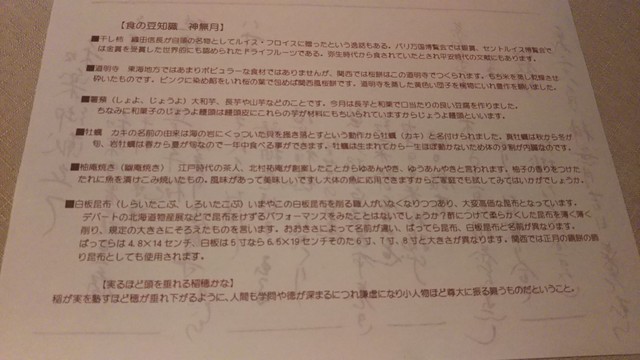 【食の豆知識…神無月】
■干し柿 織田信長が自領の名物としてルイス・フロイスに贈ったという逸話もある。パリ万国博覧会では銀賞、セントルイス博覧会で
は金賞を受賞した世界的にも認められたドライフルーツである。弥生時代から食されていたとされ平安時代の文献にもあります。
■道明寺 東海地方ではあまりポピュラーな食材ではありませんが、関西では桜餅はこの道明寺でつくられます。もち米を蒸し乾燥させ
砕いたものです。ピンクに染め餡をいれ桜の葉で包めば関西風桜餅です。道明寺を蒸した黄色い団子を植物にいれ蕾作を願いました。
■薯蕷(しょよ、じょうよ)大和芋、長芋や山芋などのことです。今月は長芋と和菓で口当たりの良い豆腐を作りました。
ちなみに和菓子のじょうよ饅頭は饅頭皮にこれらの芋が材料にもちいられていますからじょうよ饅頭といいます。
■牡蠣 カキの名前の由来は海の岩にくっついた貝を掻き落とすという動作から牡蠣(カキ)と名付けられました。真牡蠣は秋から冬が
旬、岩牡蠣は春から夏が旬なので一年中食べる事ができます。牡蠣は生まれてから一生ほぼ動かないため体の9割が内臓なのです。
■柚庵焼き(幽庵焼き) 江戸時代の茶人、北村祐庵が創案したことからゆあんやき、ゆうあんやきと言われます。柚子の香りをつけた
たれに魚を漬けこみ焼いたもの。風味があって美味しいですし大体の魚に応用できますからご家庭でも試してみてはいかがでしょうか。
■白板昆布(しらいたこぶ、しろいたこぶ)いまやこの白板昆布を削る職人がいなくなりつつあり、大変高価な昆布となっています。
デパートの北海道物産展などで昆布をけずるパフォーマンスをみたことはないでしょうか?酢につけて柔らかくした昆布を薄く薄く
削り、規定の大きさにそろえたものを言います。おおきさによって名前が違い、ばってら昆布、白板昆布と名前が異なります。
ばってらは4.8×14センチ、白板は5寸なら6.5×19センチそのた6寸、7寸、8寸と大きさが異なります。関西では正月の鏡餅の飾
り昆布としても使用されます。
【実るほど頭を垂れる稲穂かな】
稲が実を熟すほど穂が垂れ下がるように、人間も学問や徳が深まるにつれ謙虚になり小人物ほど尊大に振る舞うものだということ。